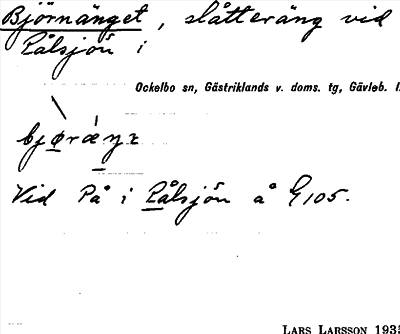 Björnänget, slåtteräng vid
Pålsjön i
Ockelbo sn, Gästriklands v. doms. tg, Gävleb. l.
bjørænʒ
Vid På i Pålsjön å G 105.
LARS LARSSON 1935